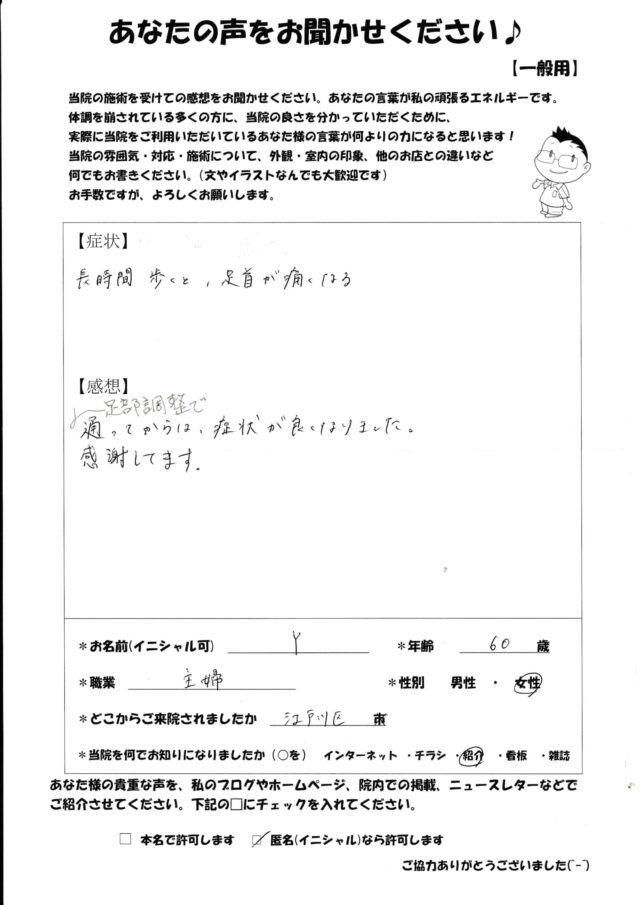 あなたの声をお聞かせください♪
【一般用】
当院の施術を受けての感想をお聞かせください。あなたの言葉が私の頑張るエネルギーです。
体調を崩されている多くの方に、当院の良さを分かっていただくために、
実際に当院をご利用いただいているあなた様の言葉が何よりの力になると思います！
当院の雰囲気・対応・施術について、外観・室内の印象、他のお店との違いなど
何でもお書きください。(文やイラストなんでも大歓迎です)
お手数ですが、よろしくお願いします。
【症状】
長時間 歩くと、足首が痛くなる
【感想】
足部調整で
通ってからは、症状が良くなりました。
感謝してます。
＊お名前(イニシャル可) Y ＊年齢 60 歳
＊職業 主婦 ＊性別 男性 ・ 女性
＊どこからご来院されましたか 江戸川区 市
＊当院を何でお知りになりましたか (○を) インターネット ・チラシ ・紹介 ・看板 ・雑誌
あなた様の貴重な声を、私のブログやホームページ、院内での掲載、ニュースレターなどで
ご紹介させてください。下記の□にチェックを入れてください。
□ 本名で許可します ☑ 匿名(イニシャル)なら許可します
ご協力ありがとうございました(^-^)